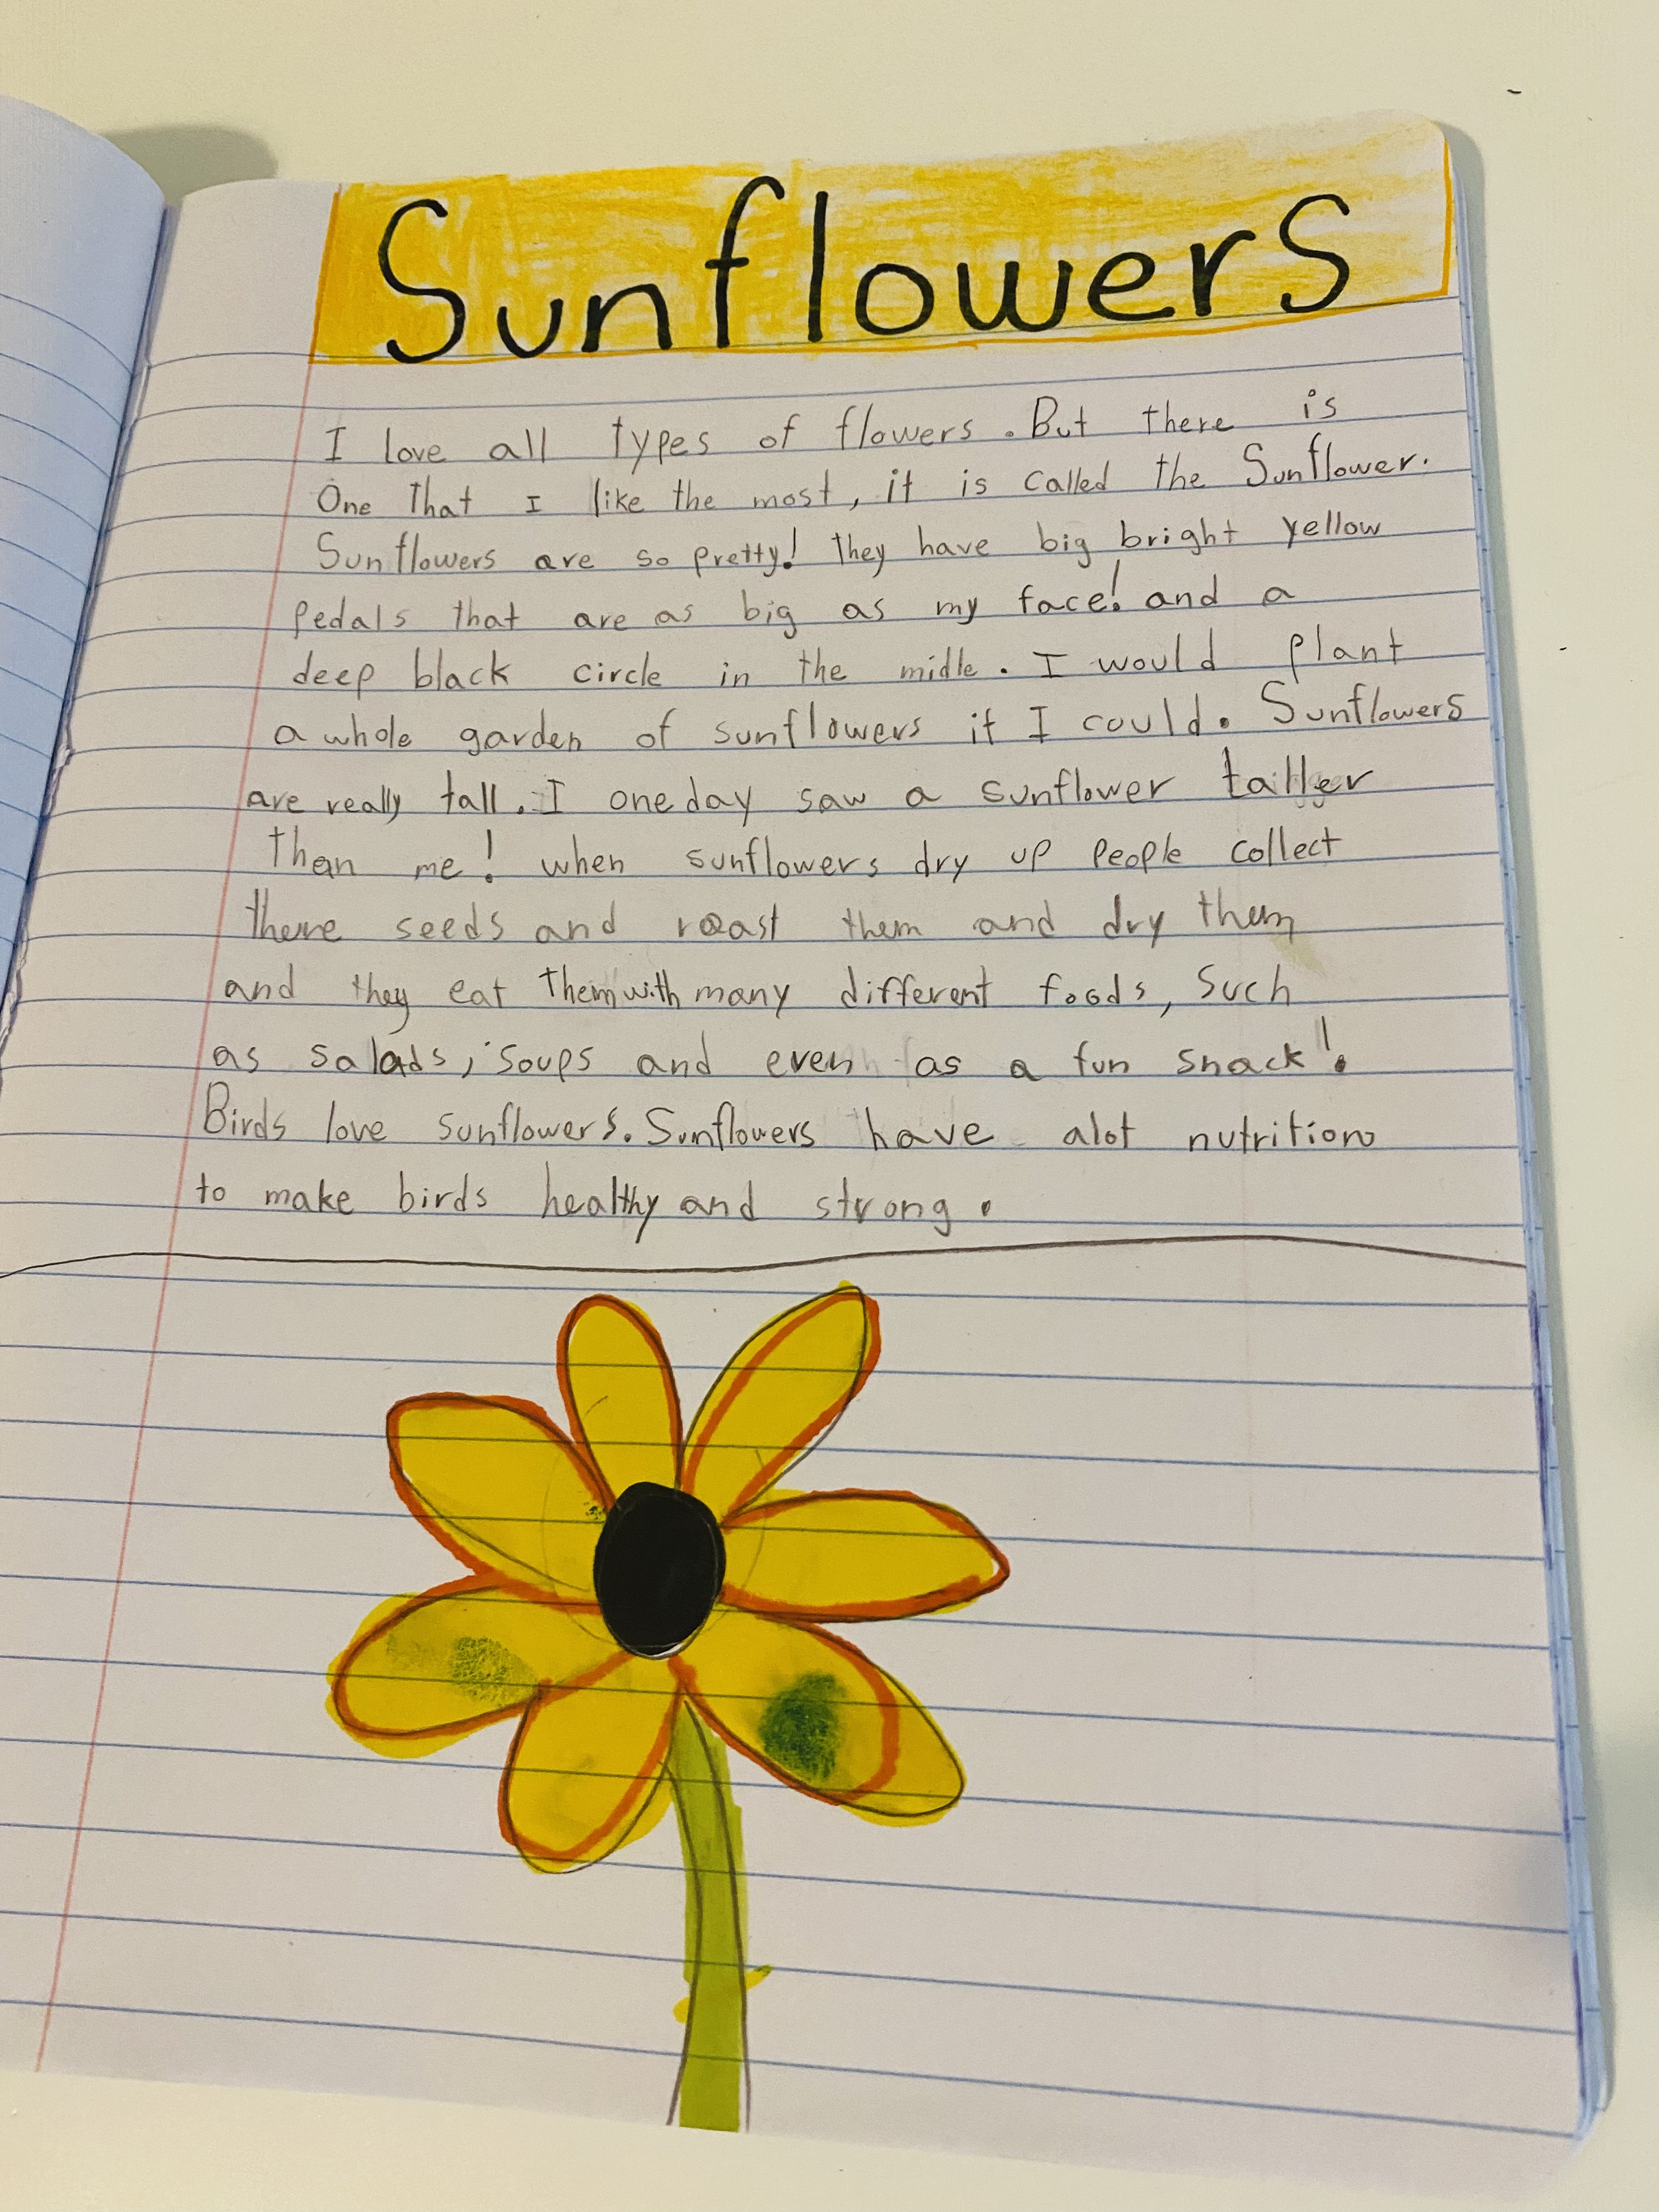 Sunflowers
I love all types of flowers. But there is
One that I like the most, it is called the Sunflower.
Sunflowers are so pretty! they have big bright yellow
pedals that are as big as my face! and a
deep black circle in the midle. I would plant
a whole garden of sunflowers if I could. Sunflowers
are really tall. I one day saw a sunflower taller
than me! when sunflowers dry up people collect
there seeds and roast them and dry them
and they eat them with many different foods, Such
as salads, soups and even as a fun snack!
Birds love sunflowers. Sunflowers have alot nutrition
to make birds healthy and strong.